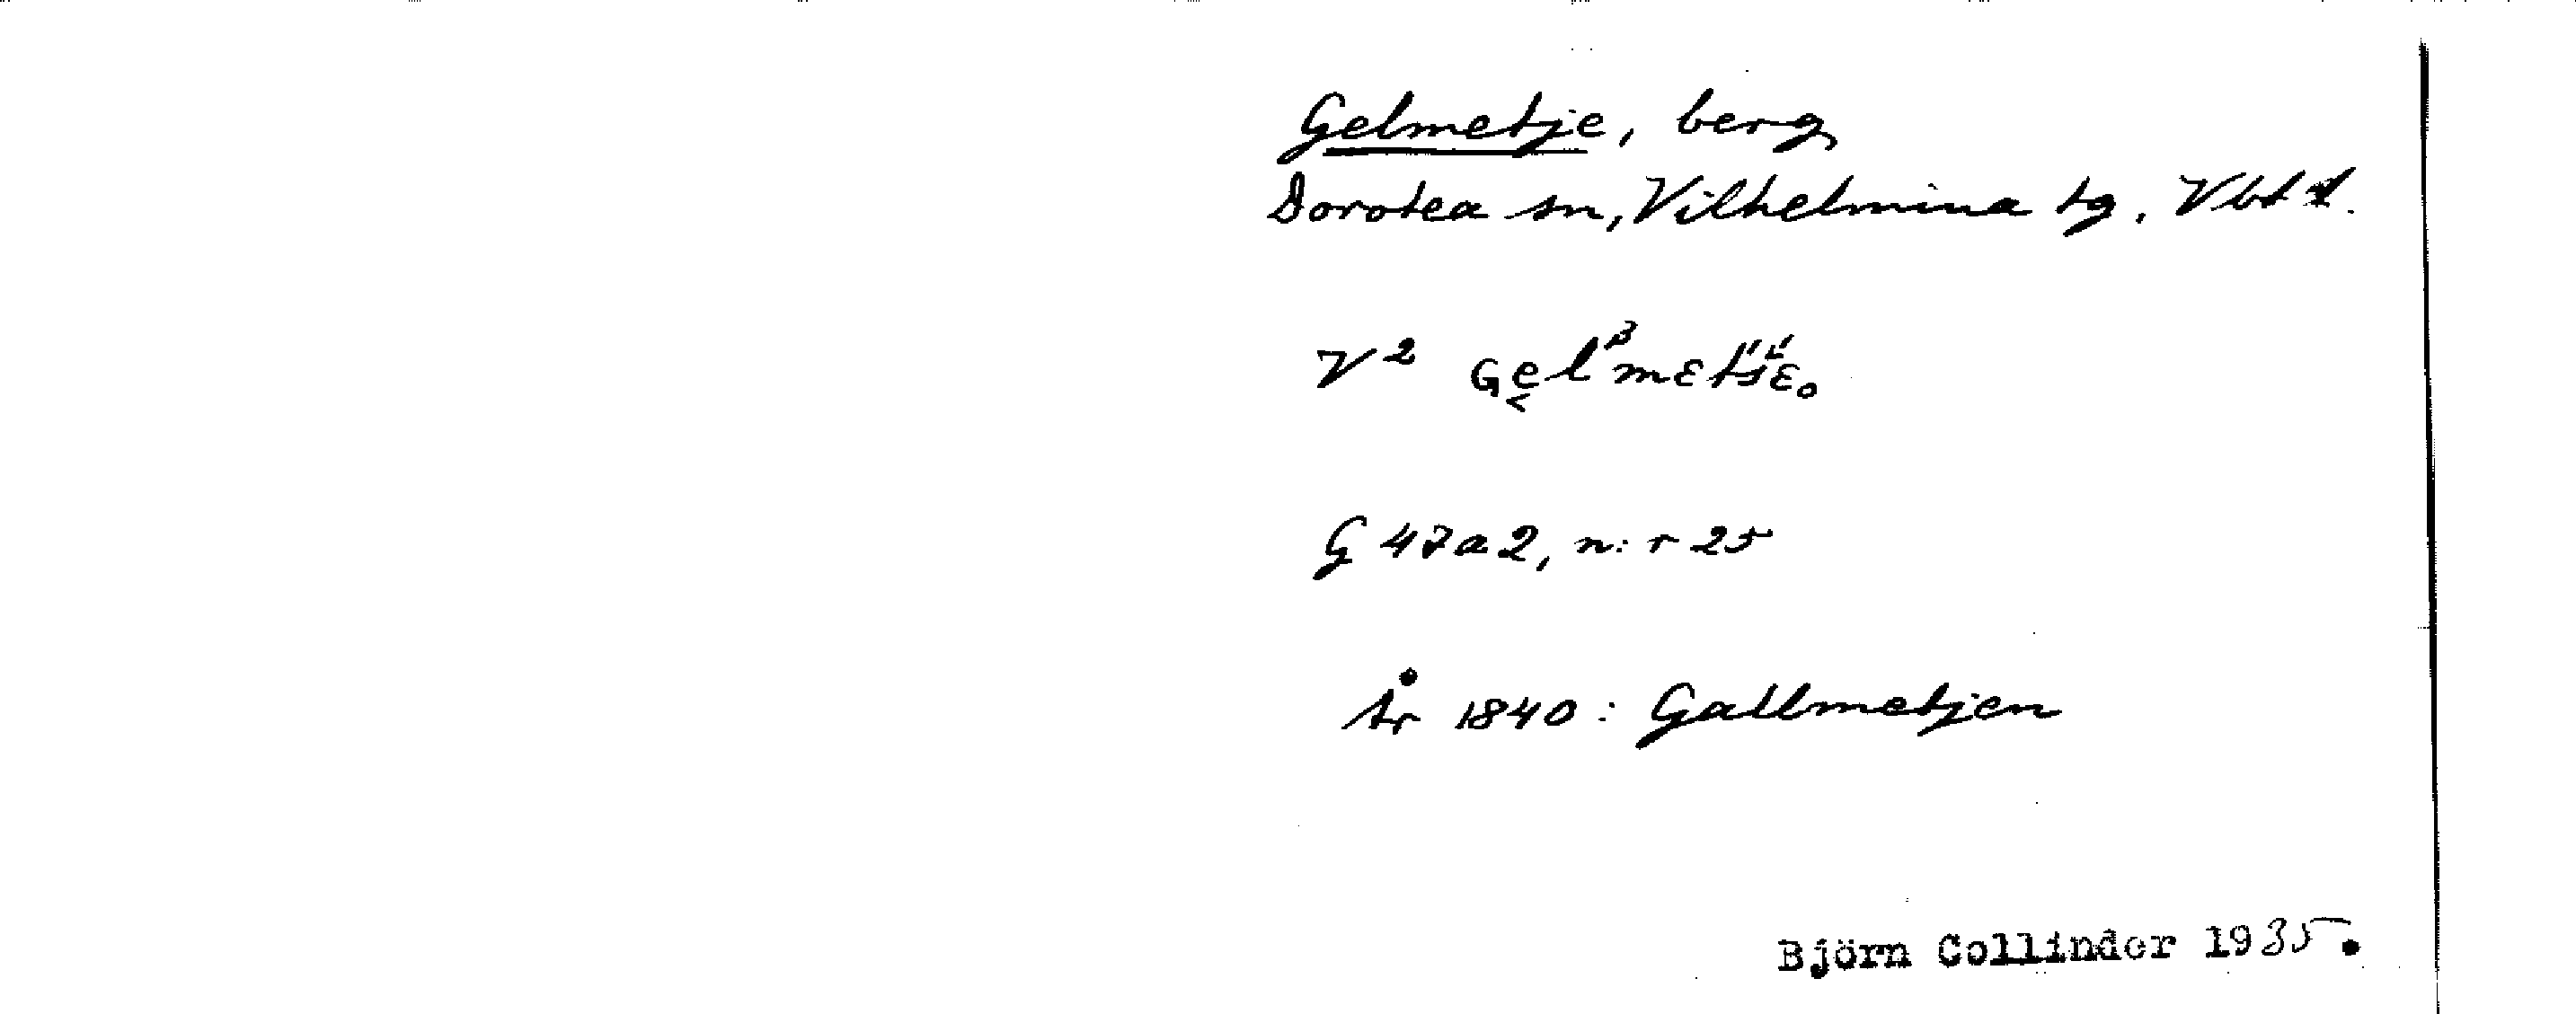 Gelmetje, berg
Dorotea sn, Vilhelmina tg. Vbtl.
V² Ge̬lᵝmεt́śέ̈ₒ
G 47a2, n:r 25
År 1840: Gallmetjen
Björn Collinder 1935.